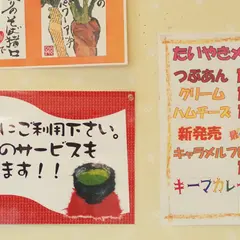 にご利用下さい。
のサービスも
ます！！
たいやきメ
つぶあん
クリーム
ハムチーズ
新発売
キャラメルフ
キーマカレ